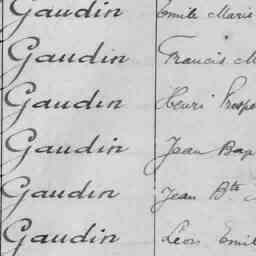 Gaudin Emile Marie
Gaudin Francis M
Gaudin Henri Prospe
Gaudin Jean Bap
Gaudin Jean Bte
Gaudin Léon Emil